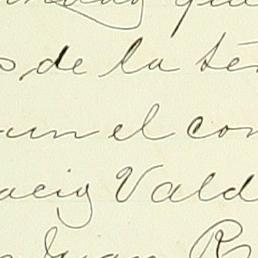 que
s, de la té
un el con
acio Vald
Juan R